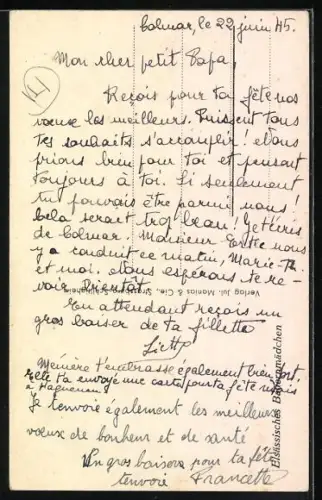 Colmar, le 22 juin 45.
Mon cher petit Papa,
Reçois pour ta fête nos
voeux les meilleurs. Puissent tous
tes souhaits s'accomplir! Nous
prions bien pour toi et pensons
toujours à toi. Si seulement
tu pouvais être parmi nous!
Cela serait trop beau! Je t'écris
de Colmar. Monsieur nous
y a conduit ce matin, Marie-Th.
et moi. Nous espérons te re-
voir bientôt.
En attendant reçois un
gros baiser de ta fillette
Mémère t'embrasse également bien fort.
Elle t'a envoyé une carte pour ta fête mais
à Haguenau
Je t'envoie également les meilleurs
voeux de bonheur et de santé
Un gros baisers pour ta fête
t'envoie Francette
Verlag Jul. Manias & Cie., Strassburg-Schiltigheim
Elsässisches Bauernmädchen